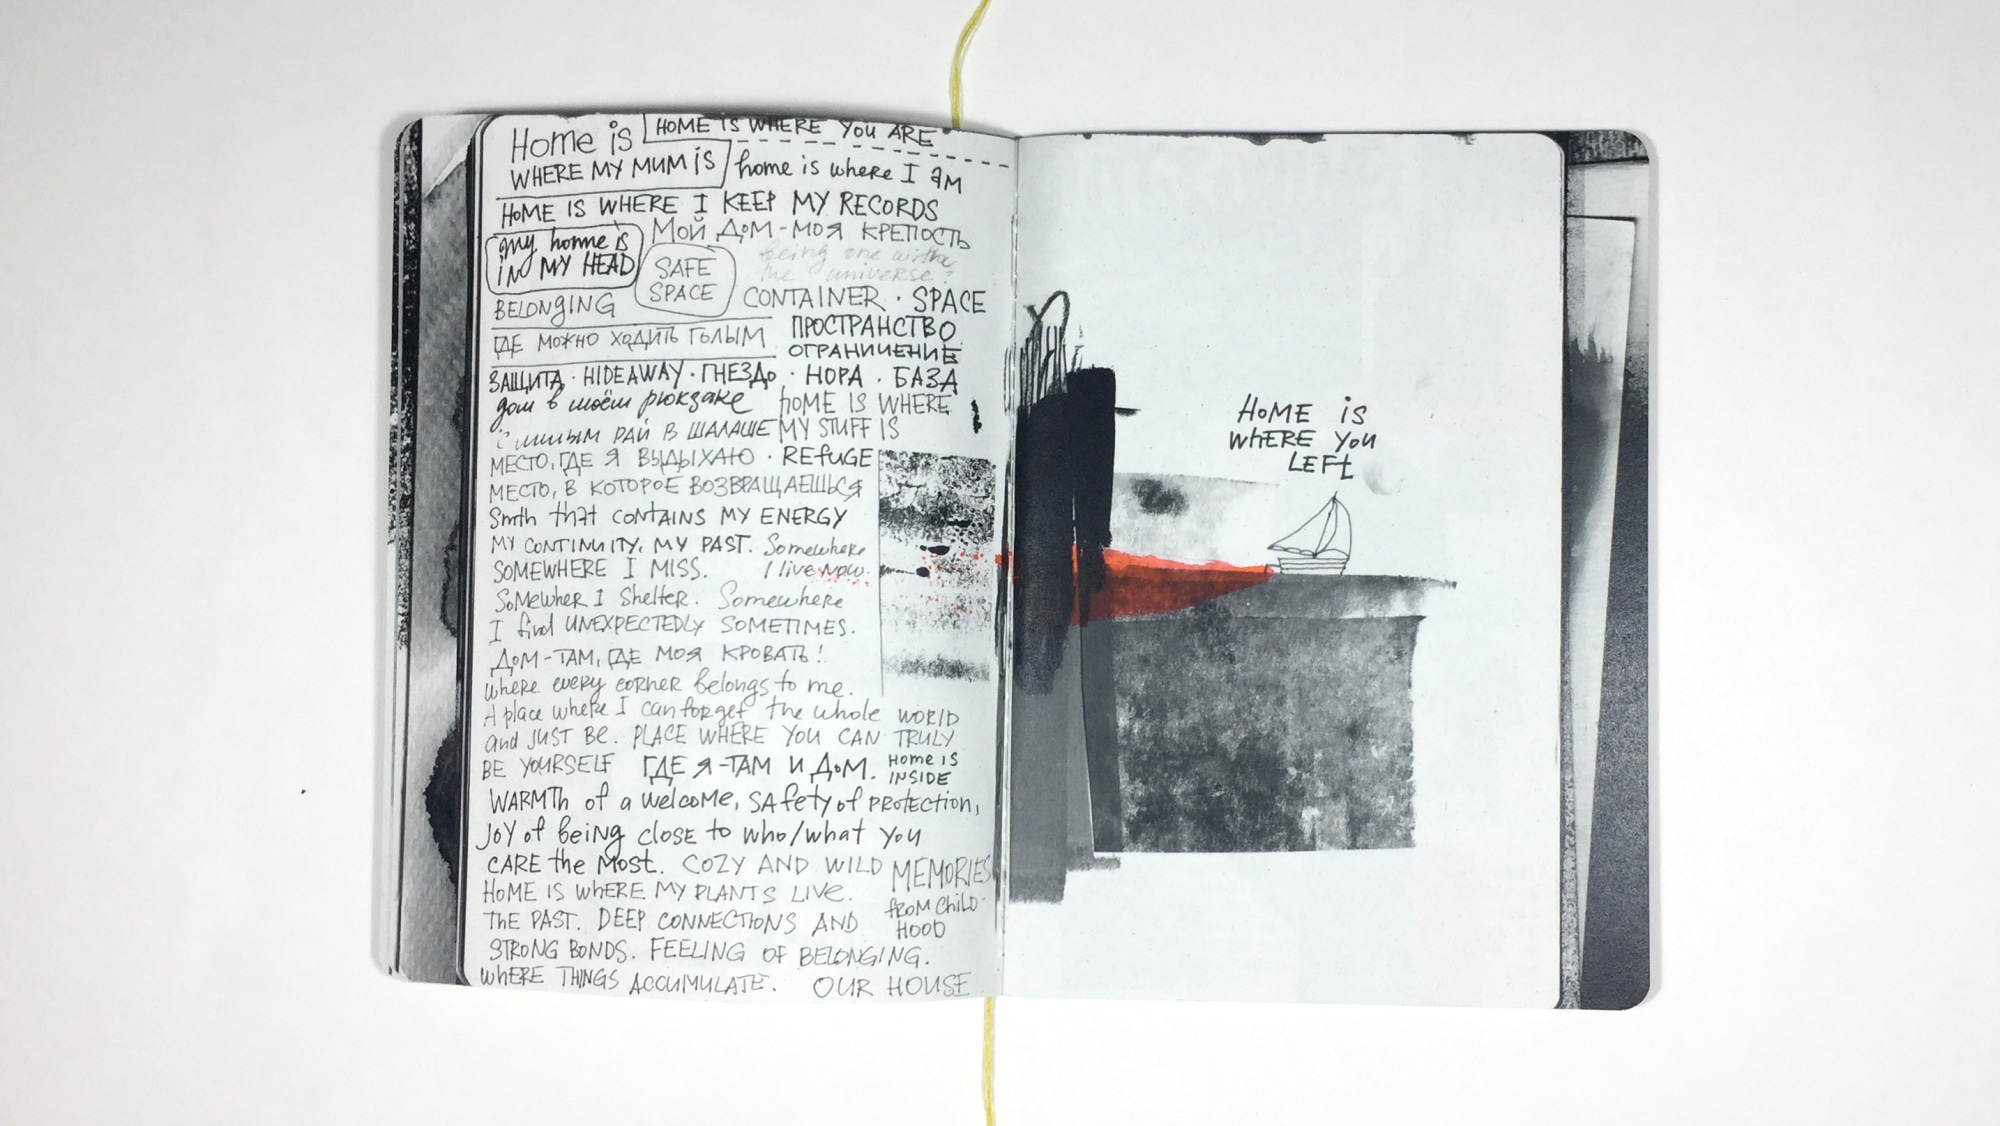 Home is
WHERE MY MUM IS
HOME IS WHERE YOU ARE
home is where I am
HOME IS WHERE I KEEP MY RECORDS
my home is
IN MY HEAD
МОЙ ДОМ-МОЯ КРЕПОСТЬ
SAFE
SPACE
being one with
the universe?
BELONGING
CONTAINER · SPACE
ГДЕ МОЖНО ХОДИТЬ ГОЛЫМ
ПРОСТРАНСТВО
ОГРАНИЧЕНИЕ
ЗАЩИТА · HIDEAWAY · ГНЕЗДО · НОРА · БАЗА
дом в моём рюкзаке
HOME IS WHERE
MY STUFF IS
С милым РАЙ В ШАЛАШЕ
МЕСТО, ГДЕ Я ВЫДЫХАЮ · REFUGE
МЕСТО, В КОТОРОЕ ВОЗВРАЩАЕШЬСЯ
Smth that CONTAINS MY ENERGY
MY CONTINUITY, MY PAST. Somewhere
SOMEWHERE I MISS. I live now.
SOMEWHER I Shelter. Somewhere
I find UNEXPECTEDLY SOMETIMES.
ДОМ-ТАМ, ГДЕ МОЯ КРОВАТЬ!
where every corner belongs to me.
A place where I can forget the whole WORLD
and JUST BE. PLACE WHERE YOU CAN TRULY
BE YOURSELF ГДЕ Я-ТАМ И ДОМ.
Home is
INSIDE
WARMTh of a welcome, SAfety of protection,
JOY of being close to who/what you
CARE the Most. COZY AND WILD
MEMORIES
FROM CHILD-
HOOD
HOME IS WHERE MY PLANTS LIVE.
THE PAST. DEEP CONNECTIONS AND
STRONG BONDS. FEELING OF BELONGING.
WHERE THINGS ACCUMULATE. OUR HOUSE
HOME is
WHERE YOU
LEFT